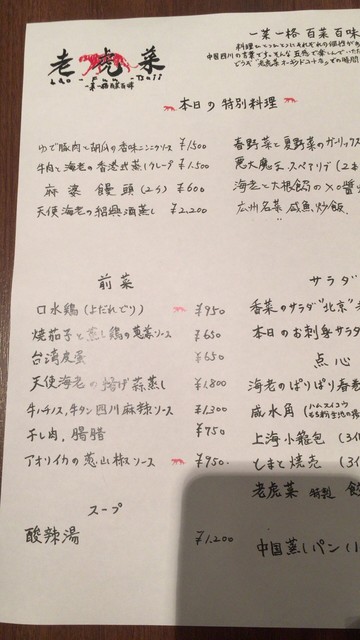 老虎菜
一菜一格 百菜百味
一菜一格 百菜百味
料理ひとつひとつにそれぞれの個性があ
中国四川の言葉です。そんな五感で楽しんでいた
どうぞ"老虎菜オーガヂスコナ店"での時間
本日の特別料理
ゆで豚肉と胡瓜の香味ニンニクソース ¥1,500
牛肉と海老の香港式蒸しクレープ ¥1,500
麻婆饅頭(2コ) ¥600
天使海老の紹興酒蒸し ¥2,200
春野菜と夏野菜のガーリックス
悪大魔王スペアリブ(2本
海老と大根餡のXO醬
広州名菜 咸魚炒飯
前菜
口水鶏(よだれどり) ¥950
焼茄子と蒸し鶏の葱薬ソース ¥650
台湾皮蛋 ¥650
天使海老の揚げ蒜蒸し ¥1,800
牛ハチノス,牛タン四川麻辣ソース ¥1,200
干し肉,腸腊 ¥750
アオリイカの葱山椒ソース ¥950.
スープ
酸辣湯 ¥1,200
サラダ
香菜のサラダ"北京"
本日のお刺身サラダ
点心
海老のぱりぱり春巻
咸水角(ハムスイコウ
上海小籠包(3個
とまと焼売(3個
老虎菜 特製
中国蒸しパン(1